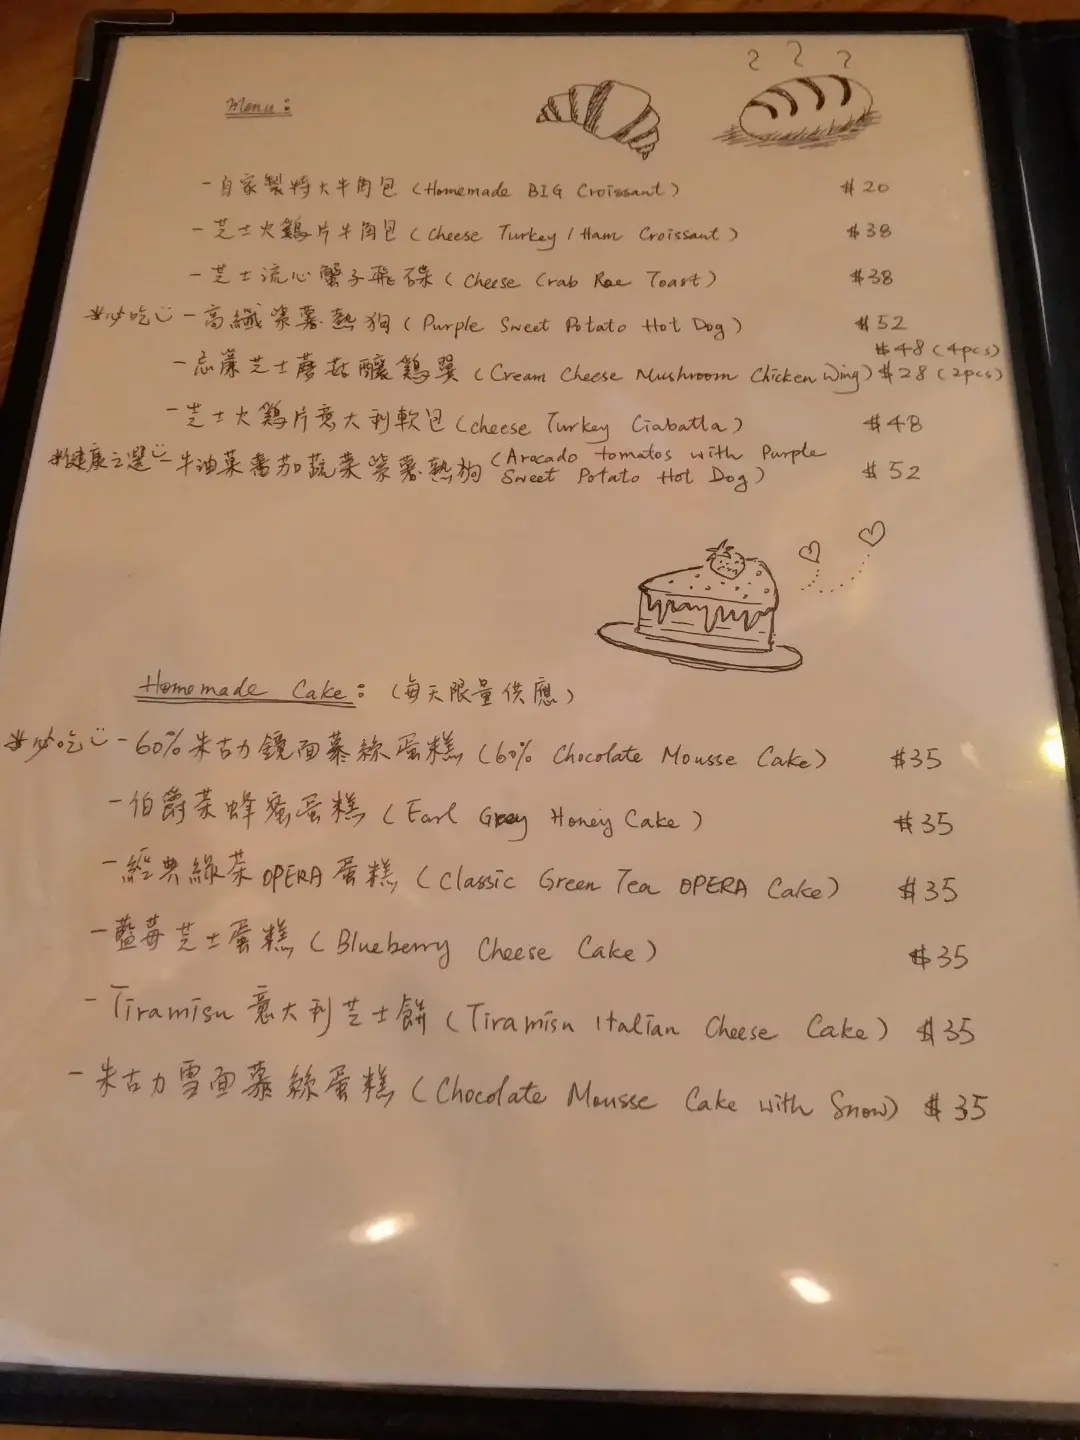 Menu:
- 自家製特大牛角包 (Homemade BIG Croissant) $20
- 芝士火鷄片牛角包 (Cheese Turkey / Ham Croissant) $38
- 芝士流心蟹子飛碟 (Cheese Crab Roe Toast) $38
*好吃 - 高纖紫薯熱狗 (Purple Sweet Potato Hot Dog) $52
$48 (4pcs)
- 忌廉芝士蘑菇釀鷄翼 (Cream Cheese Mushroom Chicken Wing) $28 (2pcs)
- 芝士火鷄片意大利軟包 (Cheese Turkey Ciabatta) $48
*健康之選 - 牛油菓番茄蔬菜紫薯熱狗 (Avocado tomatos with Purple
Sweet Potato Hot Dog) $52
Homemade Cake: (每天限量供應)
*好吃 - 60% 朱古力鏡面慕絲蛋糕 (60% Chocolate Mousse Cake) $35
- 伯爵茶蜂蜜蛋糕 (Earl Grey Honey Cake) $35
- 經典綠茶OPERA蛋糕 (Classic Green Tea OPERA Cake) $35
- 藍莓芝士蛋糕 (Blueberry Cheese Cake) $35
- Tiramisu 意大利芝士餅 (Tiramisu Italian Cheese Cake) $35
- 朱古力雪面慕絲蛋糕 (Chocolate Mousse Cake with Snow) $35